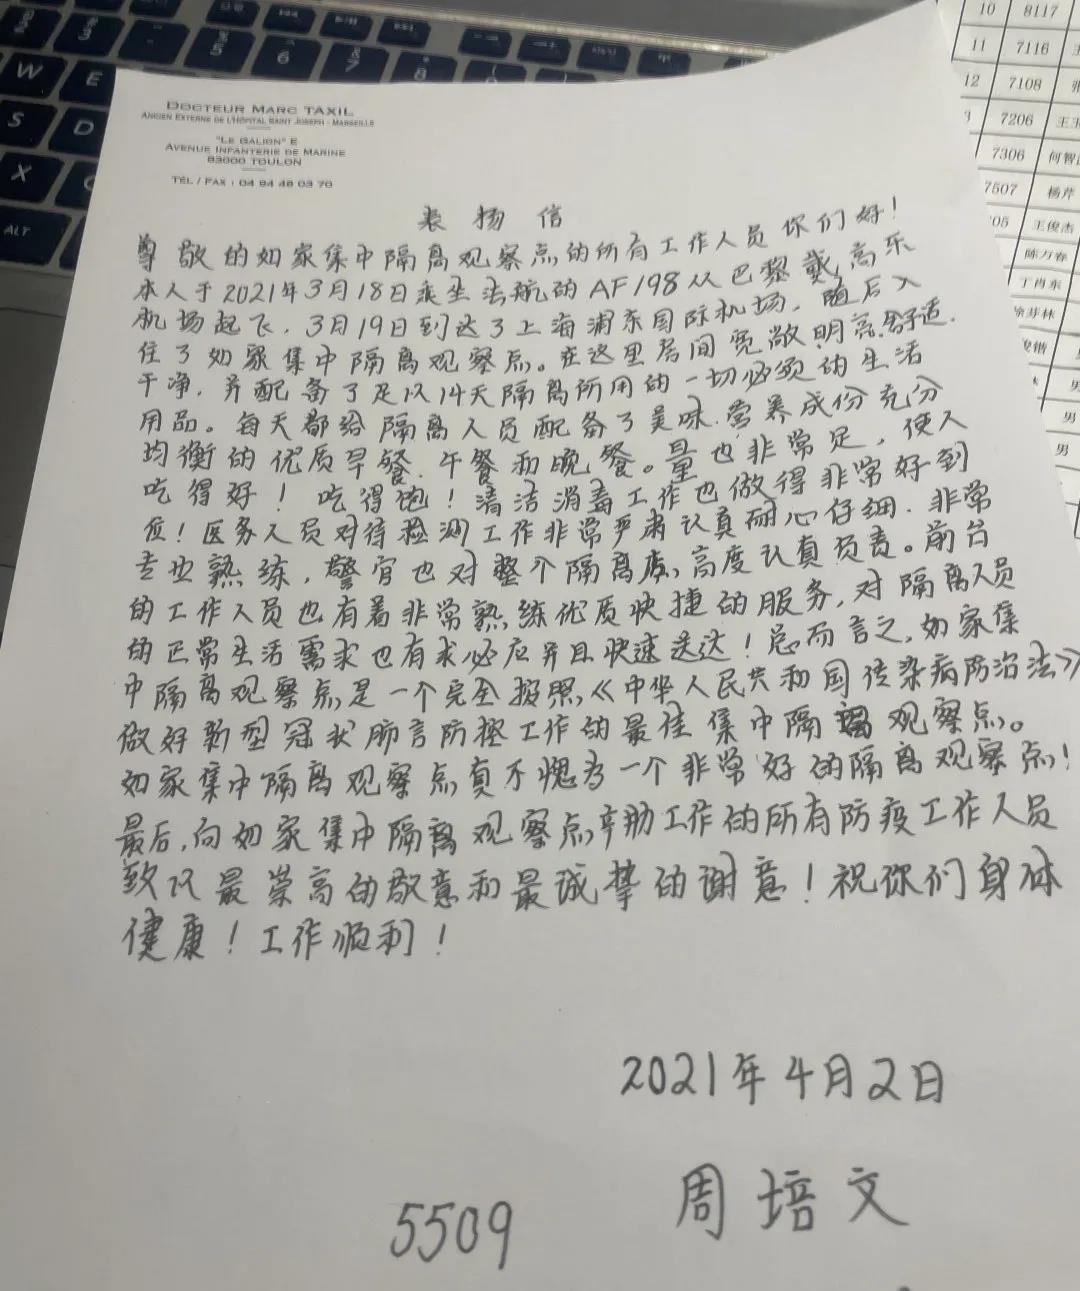 DOCTEUR MARC TAXIL
ANCIEN EXTERNE DE L'HÔPITAL SAINT JOSEPH - MARSEILLE
"LE GALION" E
AVENUE INFANTERIE DE MARINE
83000 TOULON
TÉL / FAX : 04 94 46 03 70
表扬信
尊敬的如家集中隔离观察点的所有工作人员你们好！
本人于2021年3月18日乘坐法航的AF198从巴黎戴高乐
机场起飞，3月19日到达了上海浦东国际机场，随后入
住了如家集中隔离观察点。在这里房间宽敞明亮舒适.
干净，并配备了足以14天隔离所用的一切必须的生活
用品。每天都给隔离人员配备了美味.营养成份充分
均衡的优质早餐.午餐和晚餐。量也非常足，使人
吃得好！吃得饱！清洁消毒工作也做得非常好到
位！医务人员对待检测工作非常严肃认真耐心仔细.非常
专业熟练，警官也对整个隔离点高度认真负责。前台
的工作人员也有着非常熟练优质快捷的服务，对隔离人员
的正常生活需求也有求必应并且快速送达！总而言之，如家集
中隔离观察点是一个完全按照《中华人民共和国传染病防治法》
做好新型冠状肺言防控工作的最佳集中隔离观察点。
如家集中隔离观察点真不愧为一个非常好的隔离观察点！
最后，向如家集中隔离观察点辛勤工作的所有防疫工作人员
致以最崇高的敬意和最诚挚的谢意！祝你们身体
健康！工作顺利！
2021年4月2日
周培文
5509
W
E
S
D
X
ALT
3
5
6
7
8
10 8117
11 7116
12 7108
7206
7306
7507 杨芹
05 王俊杰
陈万春
丁肖东
徐芬林
男
男
男